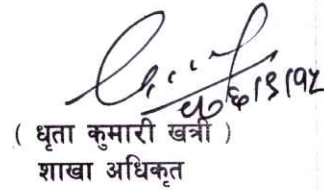 ( धृता कुमारी खत्री )
शाखा अधिकृत